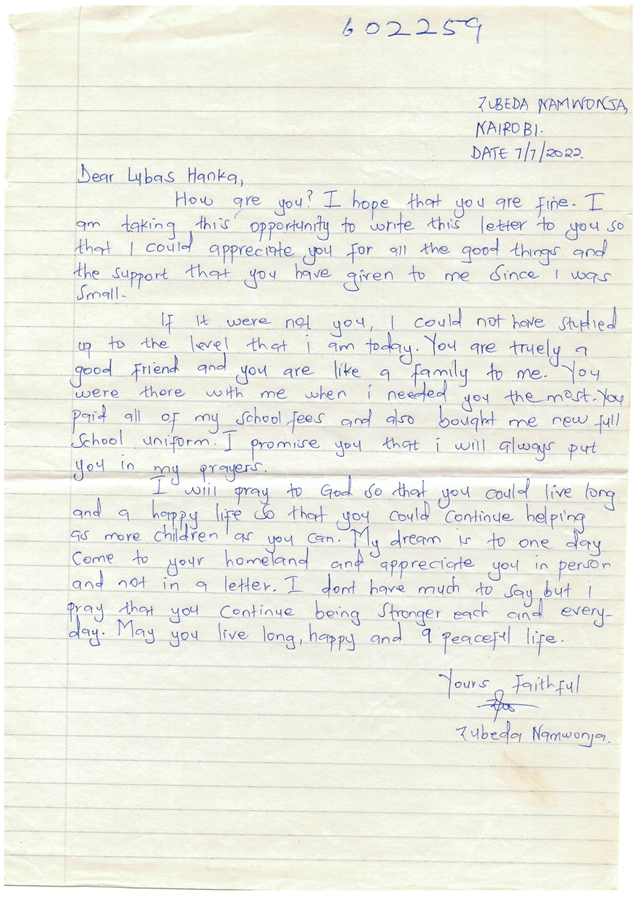 602259
ZUBEDA NAMWONJA,
NAIROBI.
DATE 7/7/2022.
Dear Lybas Hanka,
How are you? I hope that you are fine. I
am taking this opportunity to write this letter to you so
that I could appreciate you for all the good things and
the support that you have given to me since I was
small.
If it were not you, I could not have studied
up to the level that i am today. You are truely a
good friend and you are like a family to me. You
were there with me when i needed you the most. You
paid all of my school fees and also bought me new full
school uniform. I promise you that i will always put
you in my prayers.
I will pray to God so that you could live long
and a happy life so that you could continue helping
as more children as you can. My dream is to one day
come to your homeland and appreciate you in person
and not in a letter. I dont have much to say but I
pray that you continue being stronger each and every-
day. May you live long, happy and a peaceful life.
Yours Faithful
Zubeda Namwonja.